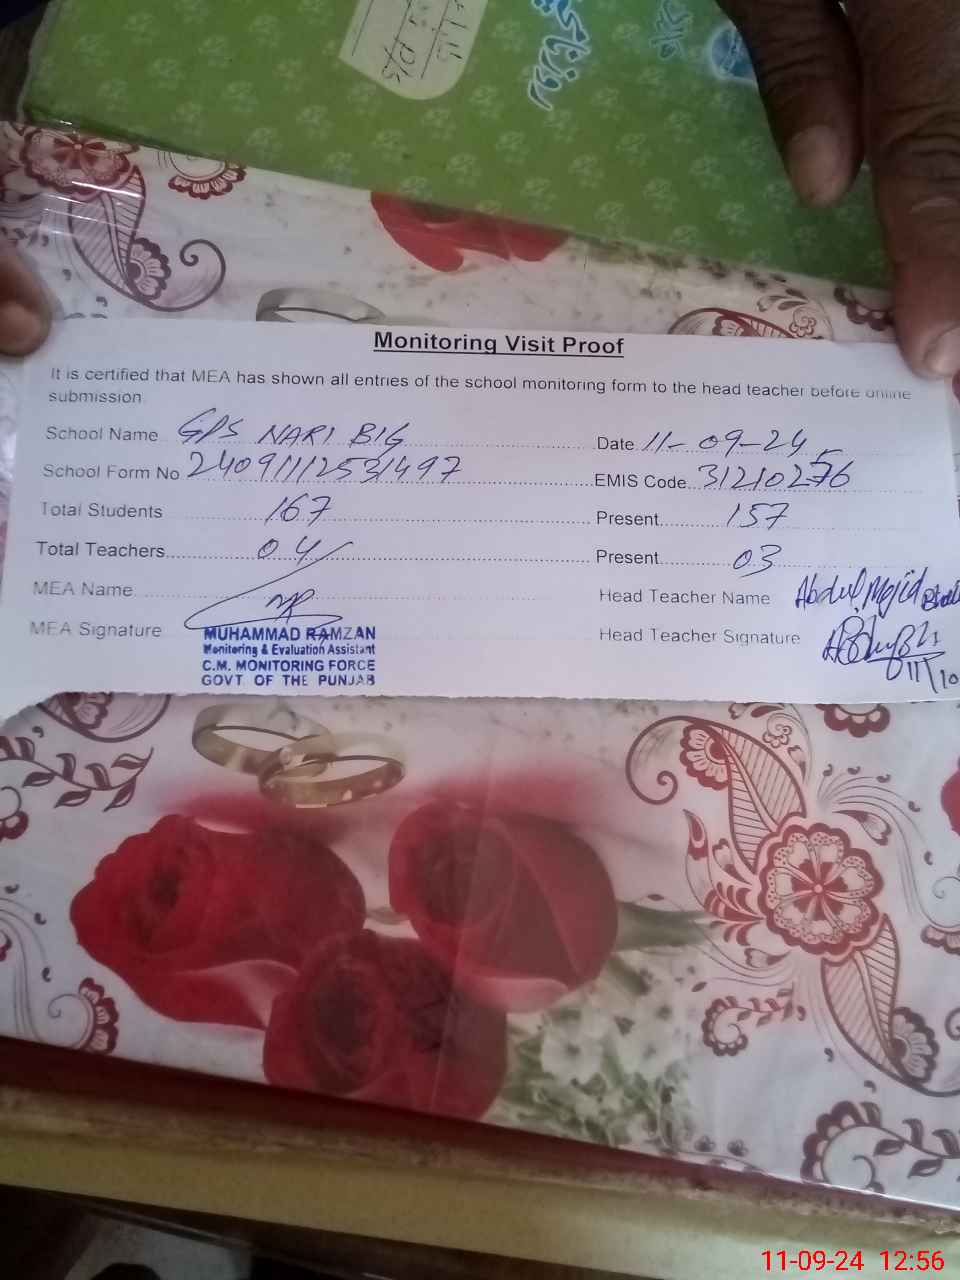 روزنامچہ
Monitoring Visit Proof
It is certified that MEA has shown all entries of the school monitoring form to the head teacher before online
submission
School Name GPS NARI BIG Date 11-09-24
School Form No 24091112531497 EMIS Code 31210276
Total Students 167 Present 157
Total Teachers 04 Present 03
MEA Name Head Teacher Name Abdul Majid
MEA Signature Head Teacher Signature
MUHAMMAD RAMZAN
Monitoring & Evaluation Assistant
C.M. MONITORING FORCE
GOVT. OF THE PUNJAB
11-09-24 12:56